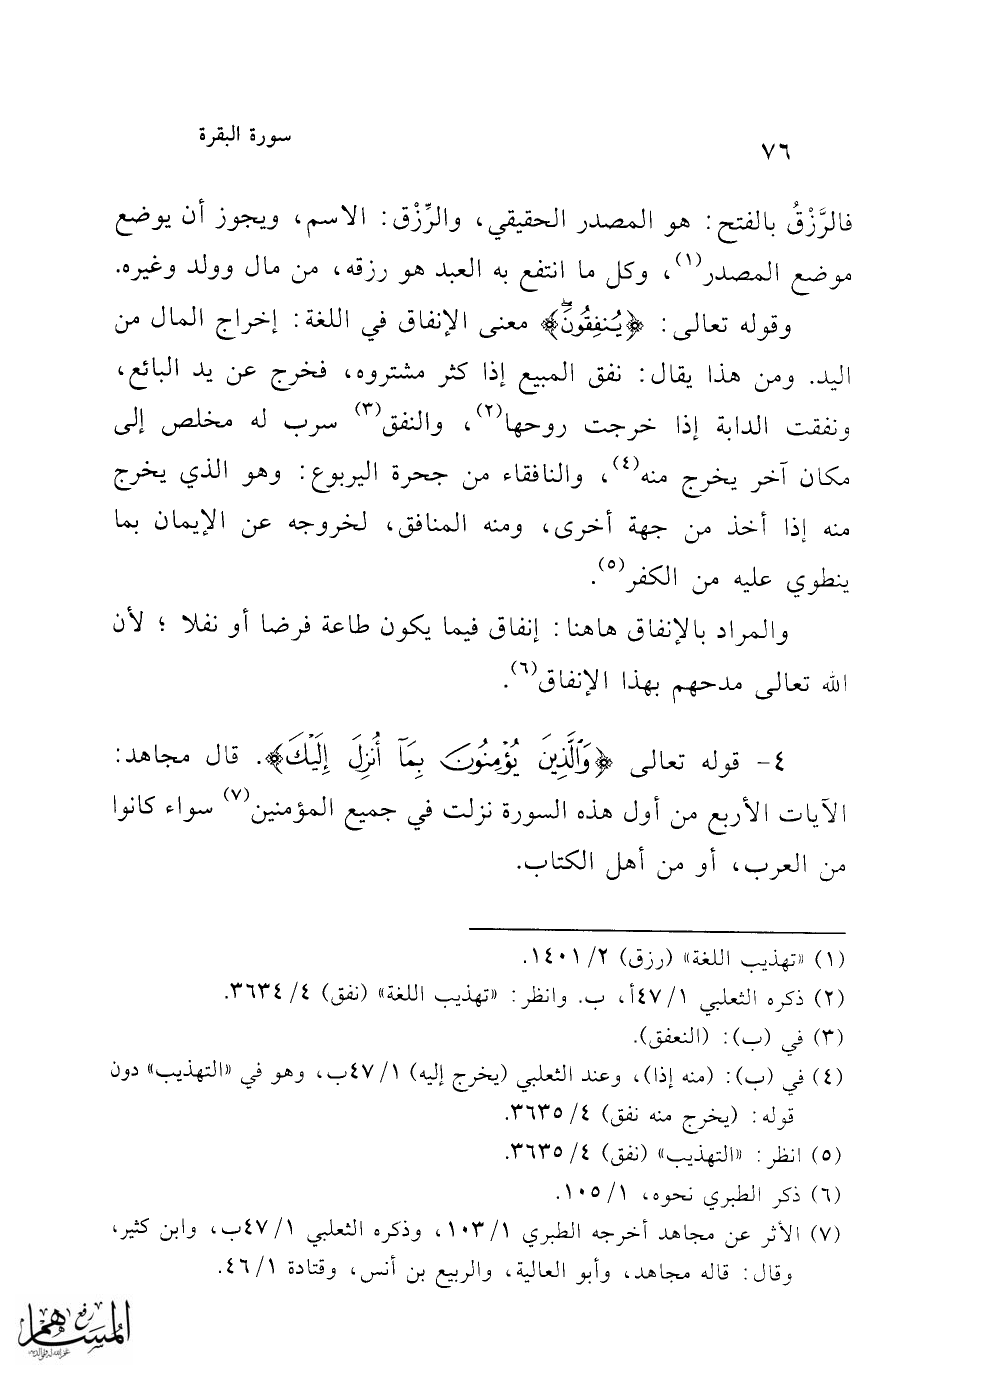 ٧٦
سورة البقرة
فالرَّزْقُ بالفتح: هو المصدر الحقيقي، والرِّزْق: الاسم، ويجوز أن يوضع
موضع المصدر(١)، وكل ما انتفع به العبد هو رزقه، من مال وولد وغيره.
وقوله تعالى: ﴿يُنفِقُونَ﴾ معنى الإنفاق في اللغة: إخراج المال من
اليد. ومن هذا يقال: نفق المبيع إذا كثر مشتروه، فخرج عن يد البائع،
ونفقت الدابة إذا خرجت روحها(٢)، والنفق(٣) سرب له مخلص إلى
مكان آخر يخرج منه(٤)، والنافقاء من جحرة اليربوع: وهو الذي يخرج
منه إذا أخذ من جهة أخرى، ومنه المنافق، لخروجه عن الإيمان بما
ينطوي عليه من الكفر(٥).
والمراد بالإنفاق هاهنا: إنفاق فيما يكون طاعة فرضا أو نفلا ؛ لأن
الله تعالى مدحهم بهذا الإنفاق(٦).
٤- قوله تعالى ﴿وَالَّذِينَ يُؤْمِنُونَ بِمَآ أُنزِلَ إِلَيْكَ﴾. قال مجاهد:
الآيات الأربع من أول هذه السورة نزلت في جميع المؤمنين(٧) سواء كانوا
من العرب، أو من أهل الكتاب.
(١) «تهذيب اللغة» (رزق) ٢/ ١٤٠١.
(٢) ذكره الثعلبي ١/ ٤٧أ، ب. وانظر: «تهذيب اللغة» (نفق) ٤/ ٣٦٣٤.
(٣) في (ب): (النعفق).
(٤) في (ب): (منه إذا)، وعند الثعلبي (يخرج إليه) ١/ ٤٧ب، وهو في «التهذيب» دون
قوله: (يخرج منه نفق) ٤/ ٣٦٣٥.
(٥) انظر: «التهذيب» (نفق) ٤/ ٣٦٣٥.
(٦) ذكر الطبري نحوه، ١/ ١٠٥.
(٧) الأثر عن مجاهد أخرجه الطبري ١/ ١٠٣، وذكره الثعلبي ١/ ٤٧ب، وابن كثير،
وقال: قاله مجاهد، وأبو العالية، والربيع بن أنس، وقتادة ١/ ٤٦.